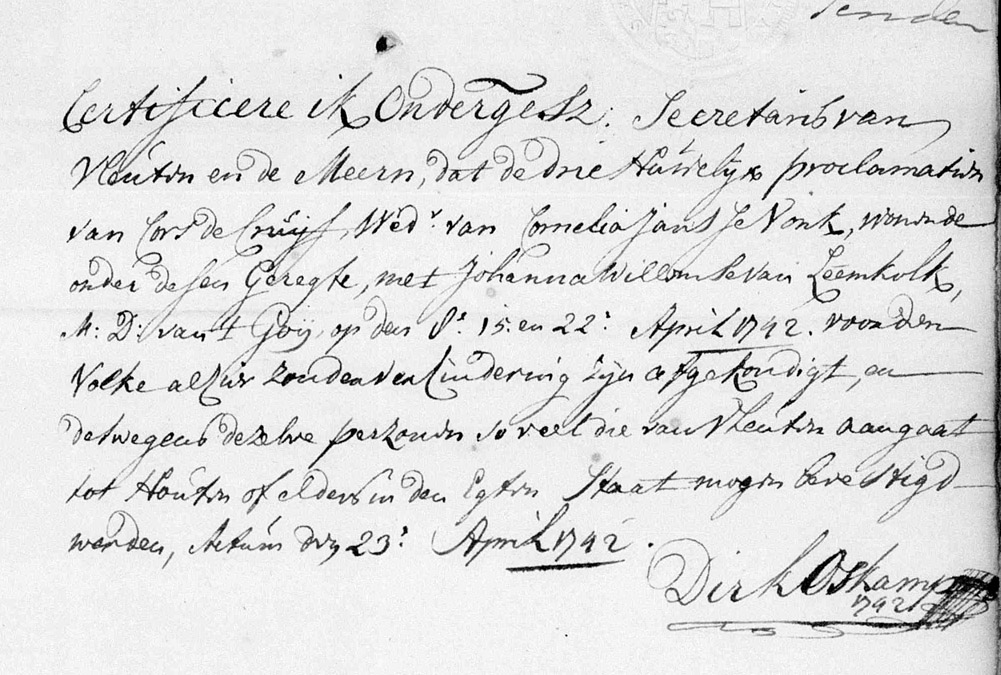 Certificere ik Ondergesz: Secretaris van
Vleuten en de Meern, dat de drie Húwelijx proclamatien
van Cors de Cruijf, Wed:r van Cornelia Jans Se Vonk, wonende
onder desen Geregte, met Johanna Willemse van Leemkolk,
M: D: van 't Goij, op den 8: 15: en 22: April 1742. voor den
Volke alhier zonder verhindering zijn afgekondigt, en
detwegens dezelve perzonen so veel die van Vleuten aangaat
tot Houten of elders in den Egten Staat mogen bevestigd
werden, Actum den 23: April 1742.
Dirk Oskamp
1742